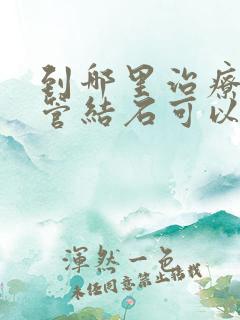 到那里治療
管結石可以
渾然一色
未经同意禁止搭载